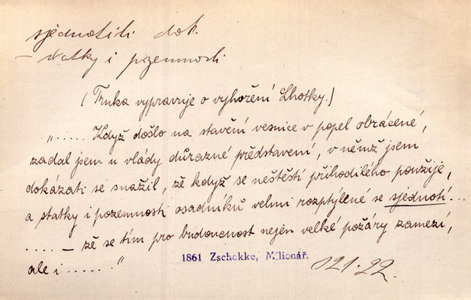 sjednotiti dok.
– statky i pozemnosti
(Fruka vypravuje o vyhoření Lhotky.)
„..... Když došlo na stavění vesnice v popel obrácené,
zadal jsem u vlády důrazné představení, v němž jsem
dokázati se snažil, že když se neštěstí přihodilého použije,
a statky i pozemnosti osadníků velmi rozptýlené se sjednotí...
..... – že se tím pro budoucnost nejen velké požáry zamezí,
ale i ......"
1861 Zschokke, Milionář.
021.22